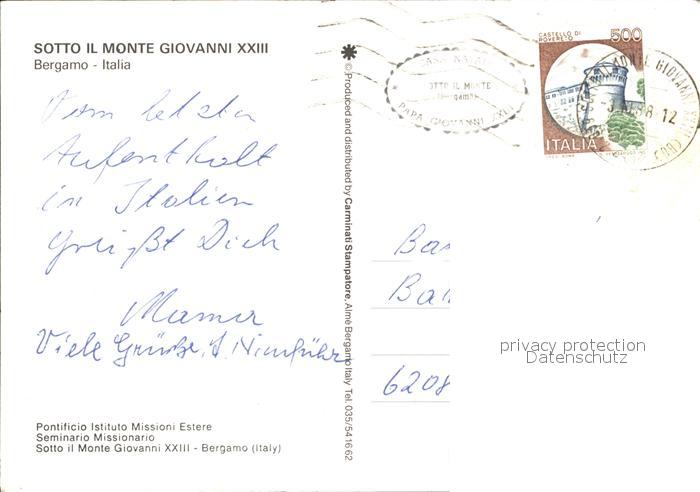 SOTTO IL MONTE GIOVANNI XXIII
Bergamo - Italia
Vom letzten
Aufenthalt
in Italien
grüßt Dich
Mama
Viele Grüße,
Pontificio Istituto Missioni Estere
Seminario Missionario
Sotto il Monte Giovanni XXIII - Bergamo (Italy)
© Produced and distributed by Carminati Stampatore, Alme Bergamo Italy Tel. 035/541662
CASA NATALE
SOTTO IL MONTE
(Bergamo)
PAPA GIOVANNI XXIII
CASTELLO DI
ROVERETO
500
ITALIA
MONTE GIOVANNI
12
Ba
Ba
6208
privacy protection
Datenschutz